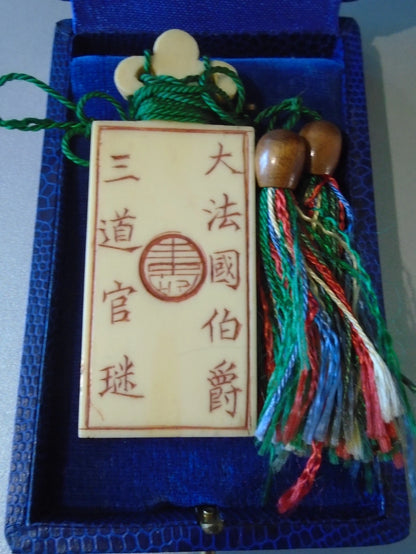 大法國伯爵
三道官